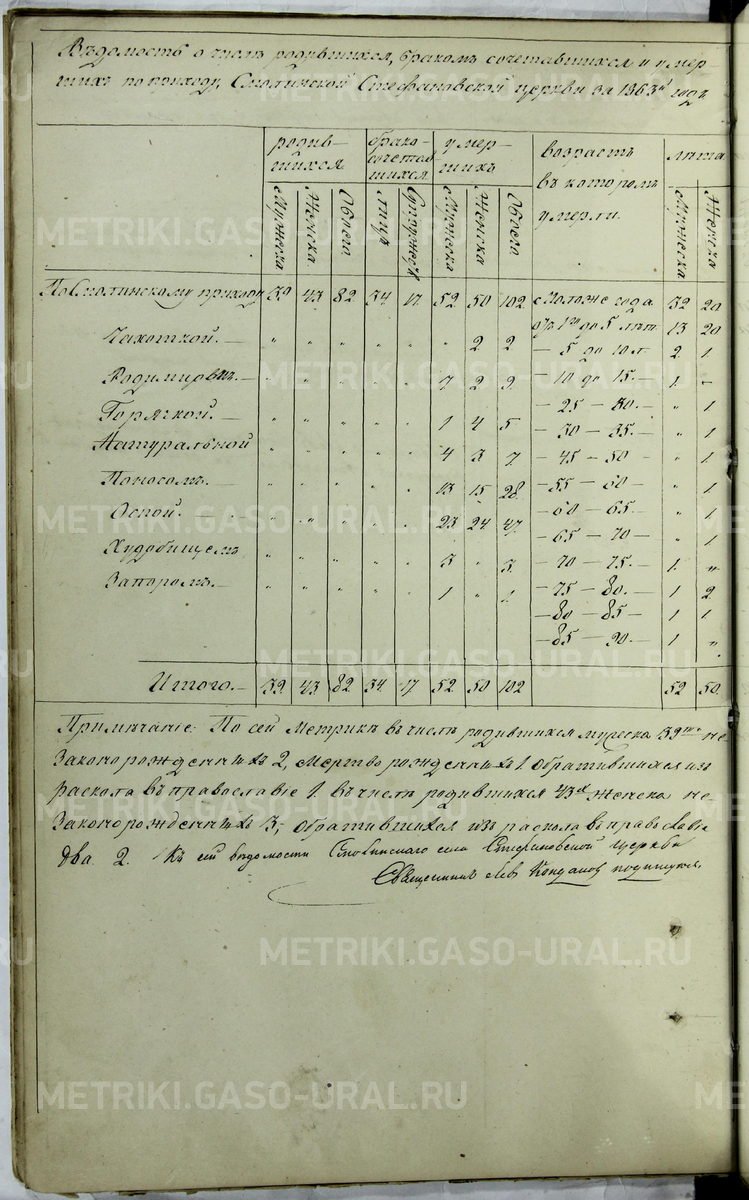 Вѣдомость о числѣ родившихся, бракомъ сочетавшихся и умер-
шихъ по приходу, Смолинской Стефановской церкви за 1863й годъ
родив- брако- умер- возрастъ лѣта
шихся сочетав шихъ въ которомъ
шихся умерли.
Мужеска Женска Обоего лица Супружествъ Мужеска Женска Обоего Мужеска Женска
По Смолинскому приходу 39 43 82 34 17. 52. 50 102. Моложе года 32 20
отъ 1го до 5 лѣт. 13 20
Чахоткой. — „ „ „ „ „ „ 2 2 — 5 до 10 л. 2. 1.
Родимцемъ. — „ „ „ „ „ 7 2 9. — 10 до 15. — 1. —
— 25 — 30. — „ 1
Горячкой. — „ „ „ „ „ 1 4 5 — 30 — 35. — „ 1
Натуральной „ „ „ „ „ 4 3 7. — 45 — 50 — „ 1.
Поносомъ. — „ „ „ „ „ 13 15 28. — 55 — 60 — „ 1
Оспой. — „ „ „ „ „ 23 24 47. — 60 — 65. — „ 1
— 65 — 70 — „ 1
Худобищемъ „ „ „ „ „ 3 „ 3. — 70 — 75. — 1. „
Запоромъ. — „ „ „ „ „ 1 „ 1. — 75 — 80. — 1 2.
— 80 — 85 — 1 1
— 85 — 90. — 1 „
Итого. — 39. 43 82 34. 17 52. 50 102 52 50.
Примѣчаніе: По сей Метрикѣ въ числѣ родившихся мужеска 39ти не-
законорожденныхъ 2, Мертворожденныхъ 1 обратившихся изъ
раскола въ православіе 1. въ числѣ родившихся 43х женска не-
законорожденныхъ 3, обратившихся изъ раскола въ православіе
два 2. Къ сей вѣдомости Смолинскаго села Стефановской Церкви
Священникъ Левъ подпишуюсь.
METRIKI.GASO-URAL.RU